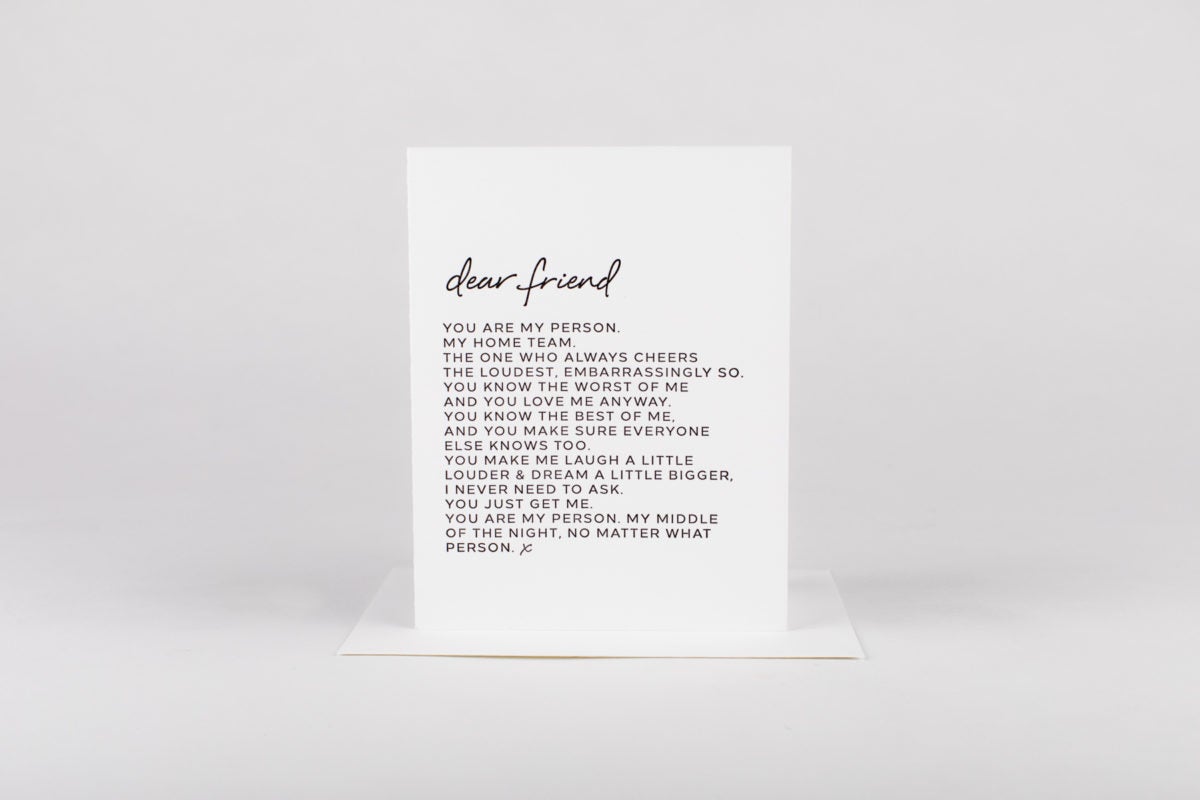 dear friend
YOU ARE MY PERSON.
MY HOME TEAM.
THE ONE WHO ALWAYS CHEERS
THE LOUDEST, EMBARRASSINGLY SO.
YOU KNOW THE WORST OF ME
AND YOU LOVE ME ANYWAY.
YOU KNOW THE BEST OF ME,
AND YOU MAKE SURE EVERYONE
ELSE KNOWS TOO.
YOU MAKE ME LAUGH A LITTLE
LOUDER & DREAM A LITTLE BIGGER,
I NEVER NEED TO ASK.
YOU JUST GET ME.
YOU ARE MY PERSON. MY MIDDLE
OF THE NIGHT, NO MATTER WHAT
PERSON. x